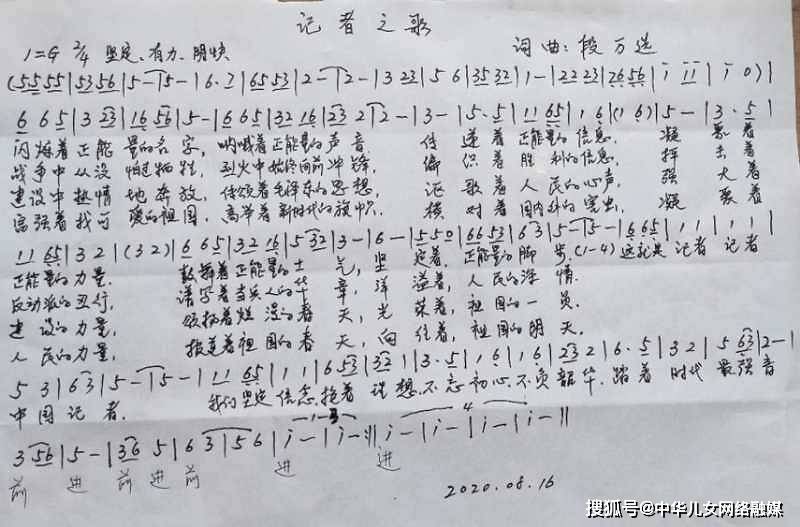 记者之歌
1=G 2/4 坚定、有力、朋快
词曲:段万选
(55 55 | 53 56 | 5 — | 5 — | 6· 2 | 65 53 | 2 — | 2 — | 3 23 | 5 6 | 35 32 | 1 — | 22 23 | 26 56 | i ii | i 0) |
6 65 | 3 23 | 16 56 | 5 — | 6 65 | 32 16 | 23 2 | 2 — | 3 — | 5· 5 | 11 65 | 1 6 | (1 6) | 5 — | 3· 5 |
闪烁着正能量的名字, 呐喊着正能量的声音 传递着正能量的信息, 凝聚着
战争中从没怕过牺牲, 烈火中始终向前冲锋, 编织着胜利的信息, 抨击着
建设中热情地奔放, 传颂着毛泽东的思想, 讴歌着人民的心声, 强大着
富强着我可爱的祖国, 高举着新时代的旗帜, 横对着国内外的害虫, 凝聚着
11 65 | 3 2 | (3 2) | 6 65 | 32 16 | 5 32 | 3 — | 6 — | 5 50 | 66 53 | 6 3 | 5 — | 5 — | 66 5 | 1 1 | 1 1 |
正能量的力量. 鼓舞着正能量的士气, 坚定着, 正能量的脚步. (1-4) 这就是记者 记者
反动派的丑行, 谱写着当兵人的华章, 洋溢着, 人民的深情.
建设的力量, 颂扬着烂漫的春天, 光荣着, 祖国的一员.
人民的力量, 报道着祖国的春天, 向往着, 祖国的明天.
5 3 | 6 3 | 5 — | 5 — | 11 65 | 1 1 | 6 53 | 32 1 | 3· 5 | 1 6 | 1 6 | 23 2 | 6· 5 | 3 2 | 5 63 | 2 — |
中国记者. 我们坚定信念, 抱着理想, 不忘初心, 不负韶华, 踏着时代最强音
3 56 | 5 — | 36 5 | 6 3 | 5 6 | i — | i — :|| i — | i — | i — | i — ||
前进 前进 前进 进
2020.08.16
搜狐号@中华儿女网络融媒